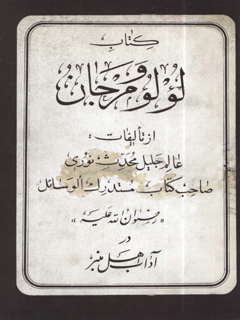 کتاب
لؤلؤ و مرجان
از تألیفات :
عالم جلیل محدث نوری
صاحب کتاب مستدرک الوسائل
«رضوان الله علیه»
در
آداب اهل منبر